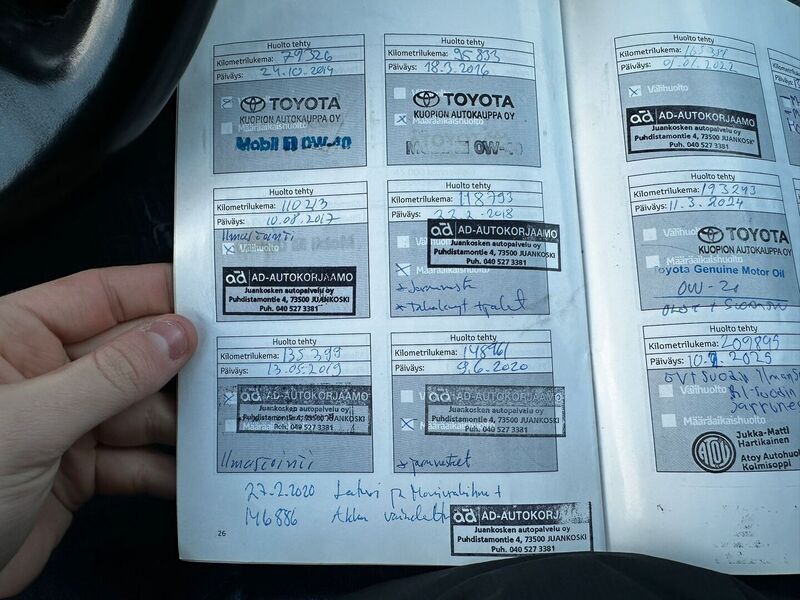 Huolto tehty
Kilometrilukema: 79326
Päiväys: 24.10.2014
Välihuolto
TOYOTA
KUOPION AUTOKAUPPA OY
Määräaikaishuolto
Mobil 1 0W-40
Huolto tehty
Kilometrilukema: 95833
Päiväys: 18.3.2016
TOYOTA
KUOPION AUTOKAUPPA OY
Määräaikaishuolto
Mobil 1 0W-40
Huolto tehty
Kilometrilukema: 110213
Päiväys: 10.08.2017
Ilmastointi
Välihuolto
AD-AUTOKORJAAMO
Juankosken autopalvelu oy
Puhdistamontie 4, 73500 JUANKOSKI
Puh. 040 527 3381
Huolto tehty
Kilometrilukema: 118793
Päiväys: 22.2.2018
AD-AUTOKORJAAMO
Juankosken autopalvelu oy
Puhdistamontie 4, 73500 JUANKOSKI
Puh. 040 527 3381
Määräaikaishuolto
* Jarruneste
Huolto tehty
Kilometrilukema: 135399
Päiväys: 13.05.2019
AD-AUTOKORJAAMO
Juankosken autopalvelu oy
Puhdistamontie 4, 73500 JUANKOSKI
Puh. 040 527 3381
Ilmastointi
Huolto tehty
Kilometrilukema: 148961
Päiväys: 9.6.2020
AD-AUTOKORJAAMO
Juankosken autopalvelu oy
Puhdistamontie 4, 73500 JUANKOSKI
Puh. 040 527 3381
* jarrunesteet
27.2.2020 Laturi ja Moniurahihna +
146886 Akku vaihdettu
AD-AUTOKORJAAMO
Juankosken autopalvelu oy
Puhdistamontie 4, 73500 JUANKOSKI
Puh. 040 527 3381
26
Huolto tehty
Kilometrilukema:
Päiväys:
Välihuolto
AD-AUTOKORJAAMO
Juankosken autopalvelu oy
Puhdistamontie 4, 73500 JUANKOSKI
Puh. 040 527 3381
Huolto tehty
Kilometrilukema: 193243
Päiväys: 11.3.2024
Välihuolto
TOYOTA
KUOPION AUTOKAUPPA OY
Määräaikaishuolto
Toyota Genuine Motor Oil
0W-20
Huolto tehty
Kilometrilukema: 209845
Päiväys: 2025
Välihuolto
Määräaikaishuolto
ATOY
Jukka-Matti
Hartikainen
Atoy Autohuol
Kolmisoppi